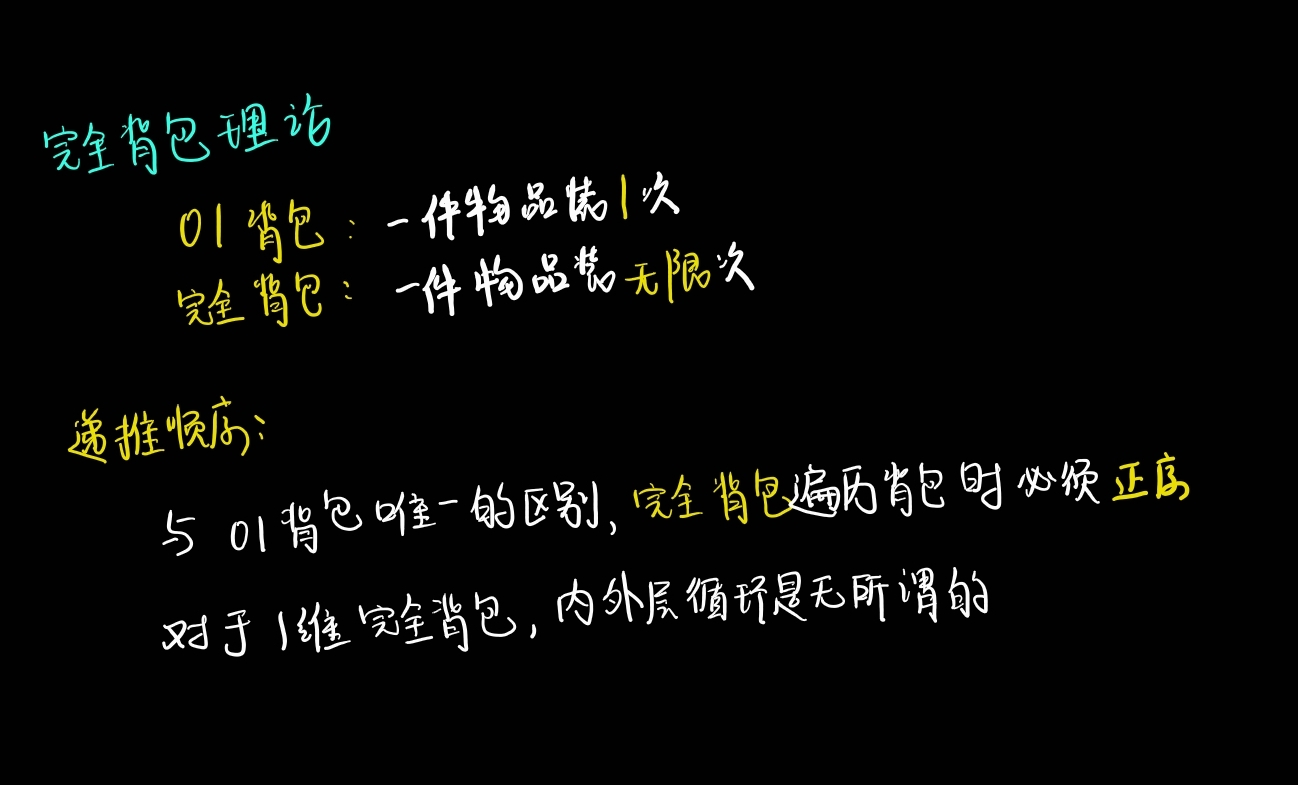 完全背包理论
01背包：一件物品装1次
完全背包：一件物品装无限次
递推顺序：
与01背包唯一的区别,完全背包遍历背包时必须正序
对于1维完全背包,内外层循环是无所谓的